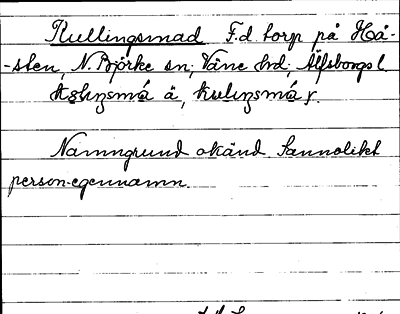 Rullingsmad F.d torp på Hå-
-sten, N. Björke sn; Väne hd; Älfsborgs l.
å,
Namngrund okänd. Sannolikt
person-egennamn.